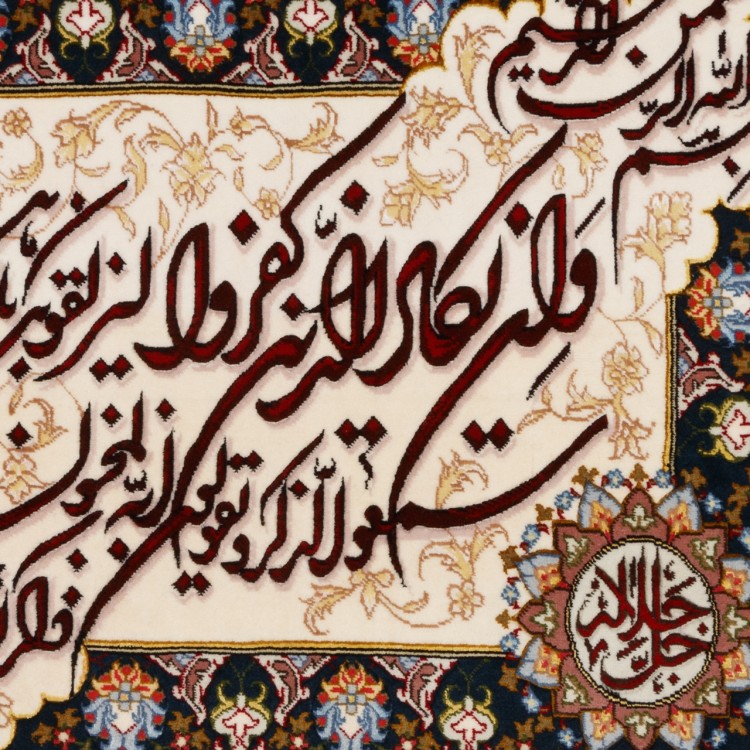 بسم الله الرحمن الرحیم
وَاِن یکاد الذین کفروا لیزلقونک
سمعوا الذکر و یقولون اِنّه لمجنون
جل جلاله